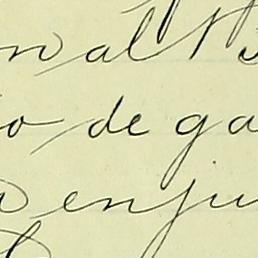 nal
o de ga
a enju